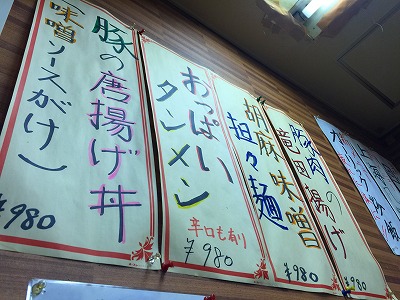 豚の唐揚げ丼
(味噌ソースがけ)
¥980
おっぱい
タンメン
辛口も有り
¥980
胡麻味噌
担々麺
¥980
豚肉の
竜田揚げ
¥980